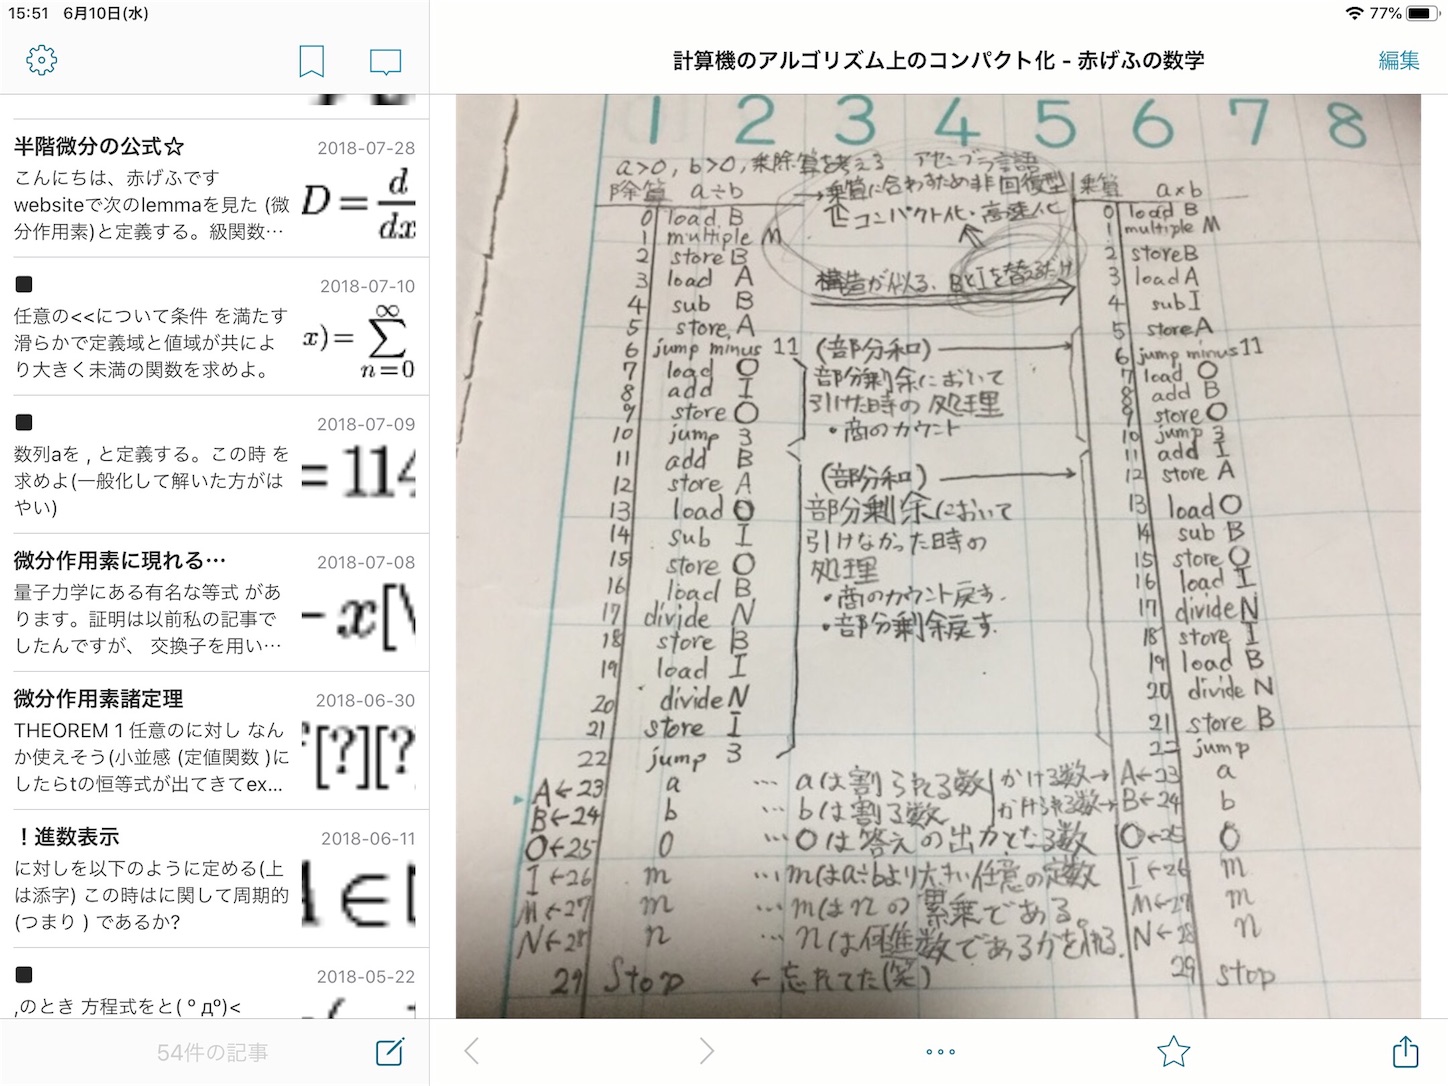 15:51 6月10日(水)
77%
計算機のアルゴリズム上のコンパクト化 - 赤げふの数学
編集
半階微分の公式☆
2018-07-28
こんにちは、赤げふです
websiteで次のlemmaを見た (微
分作用素)と定義する。級関数…
D = d
dx
■
2018-07-10
任意の<<について条件 を満たす
滑らかで定義域と値域が共によ
り大きく未満の関数を求めよ。
x) = ∞
∑
n=0
■
2018-07-09
数列aを , と定義する。この時 を
求めよ(一般化して解いた方がは
やい)
= 114
微分作用素に現れる…
2018-07-08
量子力学にある有名な等式 があ
ります。証明は以前私の記事で
したんですが、 交換子を用い…
− x[
微分作用素諸定理
2018-06-30
THEOREM 1 任意のに対し なん
か使えそう(小並感 (定値関数 )に
したらtの恒等式が出てきてex...
[?][?
！進数表示
2018-06-11
に対しを以下のように定める(上
は添字) この時はに関して周期的
(つまり ) であるか?
∈
■
2018-05-22
,のとき 方程式をと( ° д°)<
54件の記事
1 2 3 4 5 6 7 8
a>0, b>0, 乗除算を考える アセンブラ言語
除算 a÷b
0 load B
1 multiple M
2 store B
3 load A
4 sub B
5 store A
6 jump minus 11
7 load O
8 add I
9 store O
10 jump 3
11 add B
12 store A
13 load O
14 sub I
15 store O
16 load B
17 divide N
18 store B
19 load I
20 divide N
21 store I
22 jump 3
→乗算に合わすため非回復型
コンパクト化・高速化
構造が似る、BとIを替えるだけ
(部分和)
部分剰余において
引けた時の処理
・商のカウント
(部分和)
部分剰余において
引けなかった時の
処理
・商のカウント戻す.
・部分剰余戻す.
乗算 a×b
0 load B
1 multiple M
2 store B
3 load A
4 sub I
5 store A
6 jump minus 11
7 load O
8 add B
9 store O
10 jump 3
11 add I
12 store A
13 load O
14 sub B
15 store O
16 load I
17 divide N
18 store I
19 load B
20 divide N
21 store B
22 jump
A←23 a … aは割られる数 かける数→ A←23 a
B←24 b … bは割る数 かけられる数→ B←24 b
O←25 0 … Oは答えの出力となる数 O←25 0
I←26 m … mはa÷bより大きい任意の定数 I←26 m
M←27 m … mはnの累乗である。 M←27 m
N←28 n … nは何進数であるかを入れる. N←28 n
29 Stop ←忘れてた(笑) 29 stop